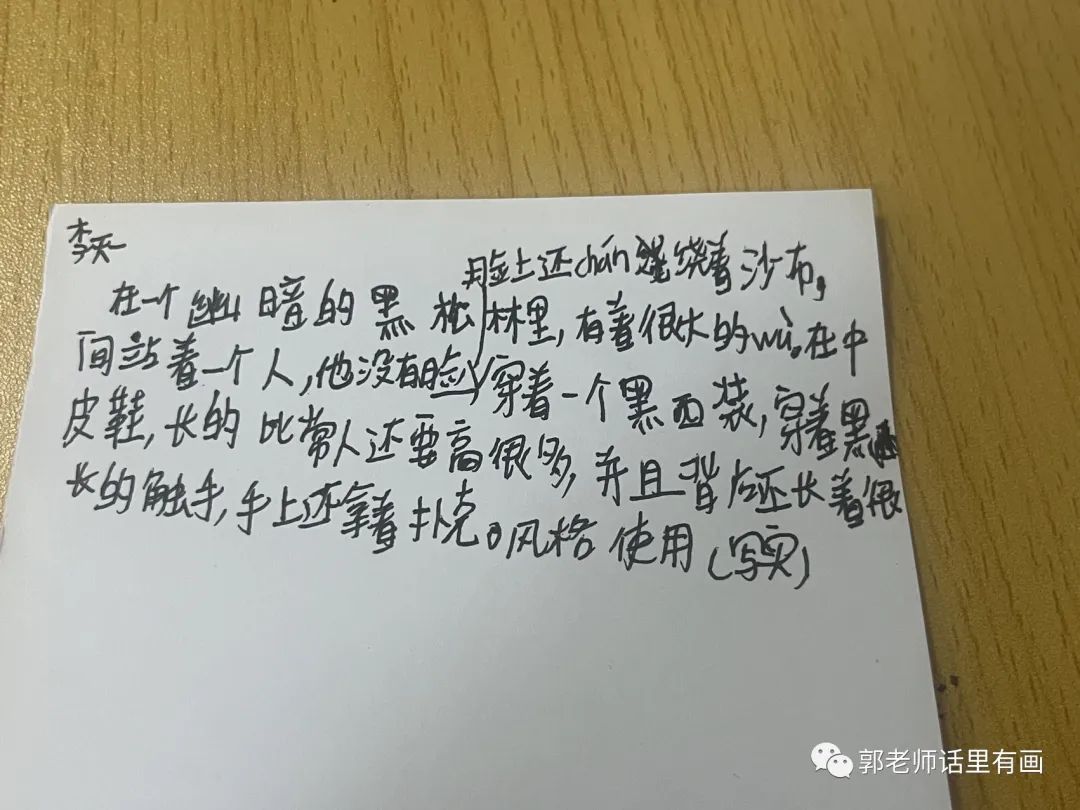 李
脸上还chán绕着沙布，
在一个幽暗的黑松林里，有着很大的wù。在中
间站着一个人，他没有脸，穿着一个黑西装，穿着黑
皮鞋，长的比常人还要高很多，并且背后还长着很
长的触手，手上还拿着扑克。风格使用（写实）
郭老师话里有画